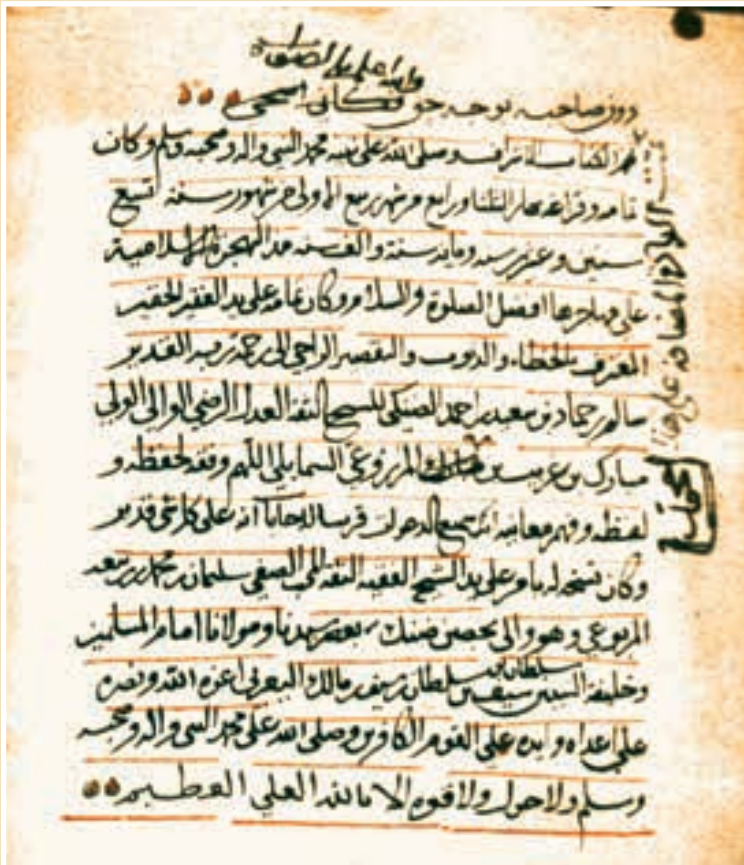 والله اعلم بالصواب
دون صاحبه بوجه حق فكاني اضحي
تم الكتاب وصلى الله على نبيه محمد النبي واله وصحبه وسلم وكان
تمامه نهار الثلثا ورابع من شهر ربيع الاولى من شهور سنة تسع
سنين وعشرين سنه ومايه سنة والف سنه من الهجرة الاسلامية
على مهاجرها افضل الصلوة والسلام وكان تمامه على يد الفقير الحقير
المعترف بالخطاء والذنوب والتقصير الراجي الى رحمة ربه القدير
سالم بن حماد بن سعيد بن احمد الضنكي للشيخ الثقة العدل الرضي الوالي الولي
مبارك بن غريب بن المزروعي السمايلي اللهم وفقه لحفظه و
لفظه وفهم معانيه انك سميع الدعوات قريب الاجابة انه على كل شي قدير
وكان نسخه له بامر على يد الشيخ الفقيه الثقة الصفي سليمان بن محمد بن سعد
الربوعي وهو والي بحصن ضنك سيدنا ومولانا امام المسلمين
وخليفة سلطان بن سيف بن سلطان بن سيف بن مالك اليعربي اعزه الله ونصره
على اعداه وايده على القوم الكافرين وصلى الله على محمد النبي واله وصحبه
وسلم ولا حول ولا قوة الا بالله العلي العظيم